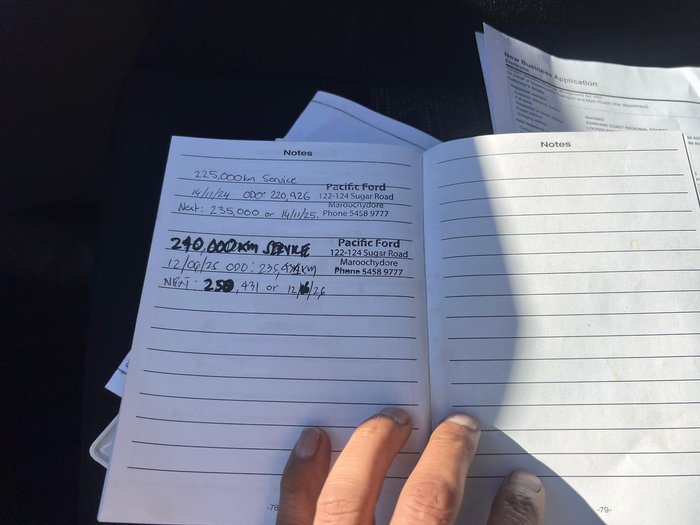 New Business Application
Notes
225,000km Service
14/11/24 ODO: 220,926
Next: 235,000 or 14/11/25.
Pacific Ford
122-124 Sugar Road
Maroochydore
Phone 5458 9777
240,000km SERVICE
12/06/25 ODO: 235,431km
NEXT: 250,431 or 12/6/26
Pacific Ford
122-124 Sugar Road
Maroochydore
Phone 5458 9777
-78-
Notes
-79-
SUNSHINE COAST REGIONAL